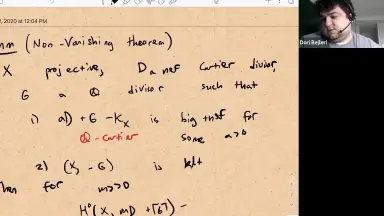 2, 2020 at 12:04 PM
(Non-Vanishing theorem)
X projective, D a nef Cartier divisor,
G a Q divisor such that
1) aD + G - K_X is big + nef for
Q-cartier some a>0
2) (X, -G) is klt
Then for m>>0
H⁰(X, mD + ⌈G⌉)
Dori Bejleri